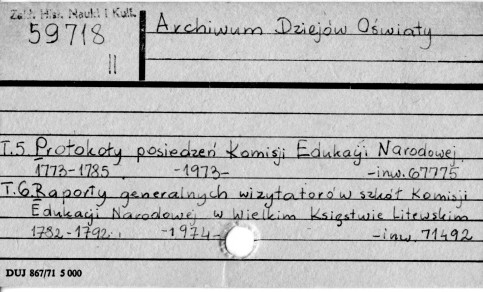 Zakł. Hist. Nauki i Kult.
59718
II
Archiwum Dziejów Oświaty
T.5. Protokoły posiedzeń Komisji Edukacji Narodowej
1773-1785 -1973- -inw. 67775
T.6. Raporty generalnych wizytatorów szkół Komisji
Edukacji Narodowej w Wielkim Księstwie Litewskim
1782-1792. -1974- -inw. 71492
DUJ 867/71 5 000